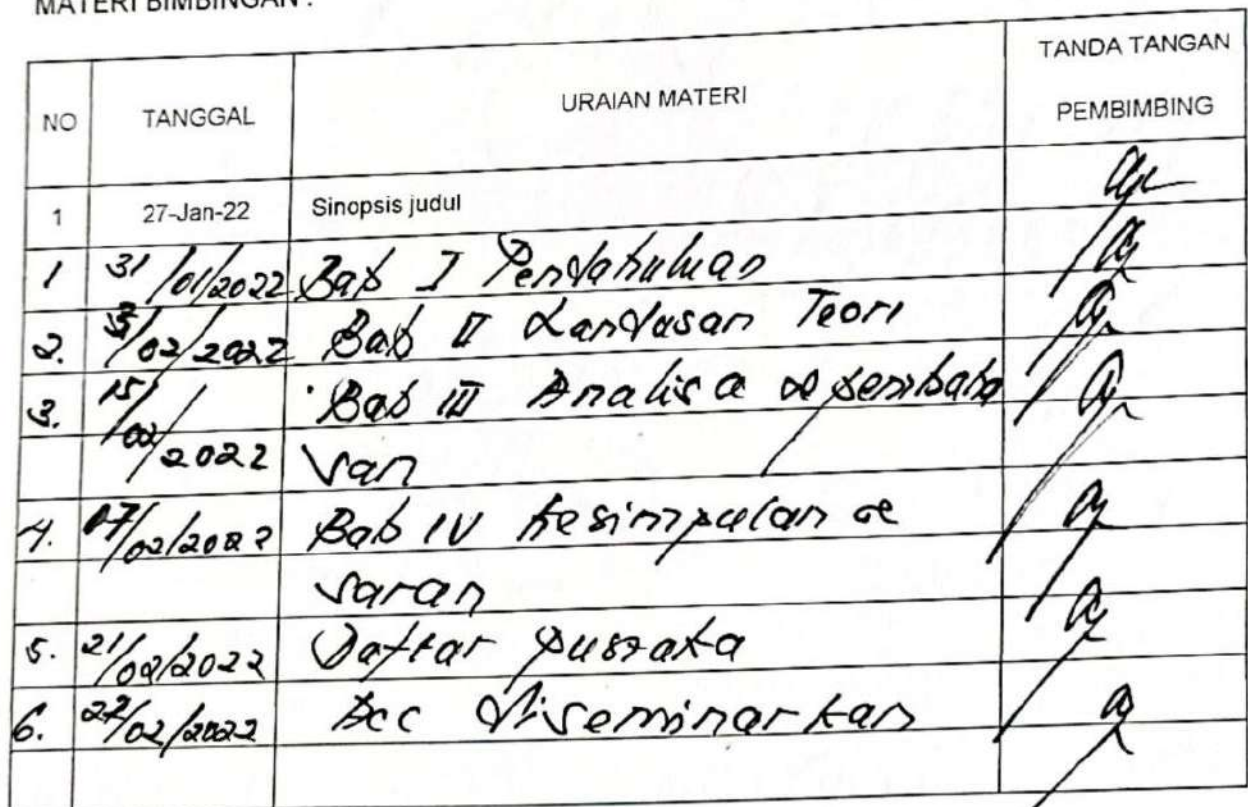 MATERI BIMBINGAN :
NO TANGGAL URAIAN MATERI TANDA TANGAN PEMBIMBING
1 27-Jan-22 Sinopsis judul
1 31/01/2022 Bab I Pendahuluan
2. /02/2022 Bab II Landasan Teori
3. 15/02/2022 Bab III Analisa & Pembaha
san
4. 17/02/2022 Bab IV Kesimpulan &
saran
5. 21/02/2022 Daftar pustaka
6. /02/2022 Acc diseminarkan